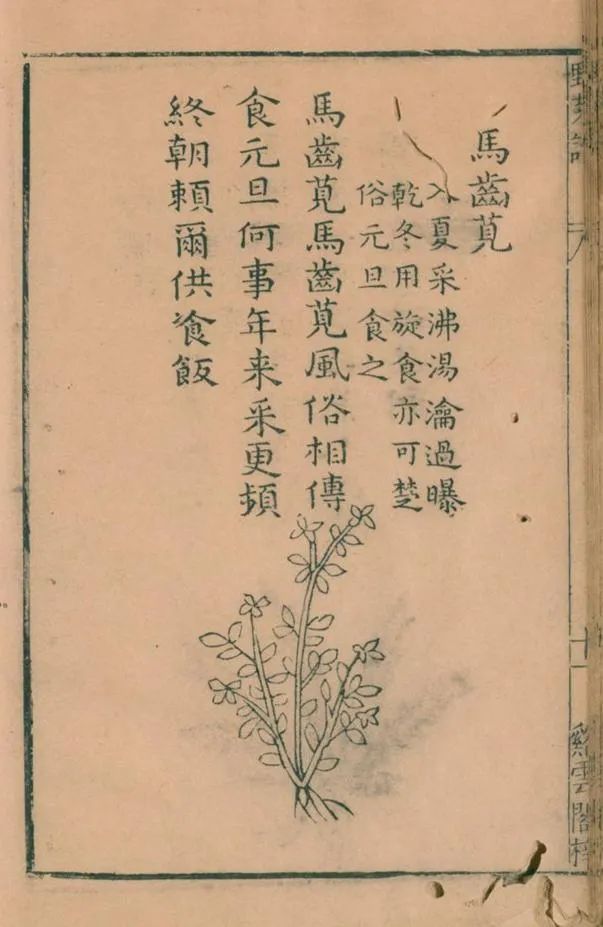 馬齒莧
入夏采沸湯瀹過曝
乾冬用旋食亦可楚
俗元旦食之
馬齒莧馬齒莧風俗相傳
食元旦何事年来采更頻
終朝賴爾供飱飯
十一
雲閣梓